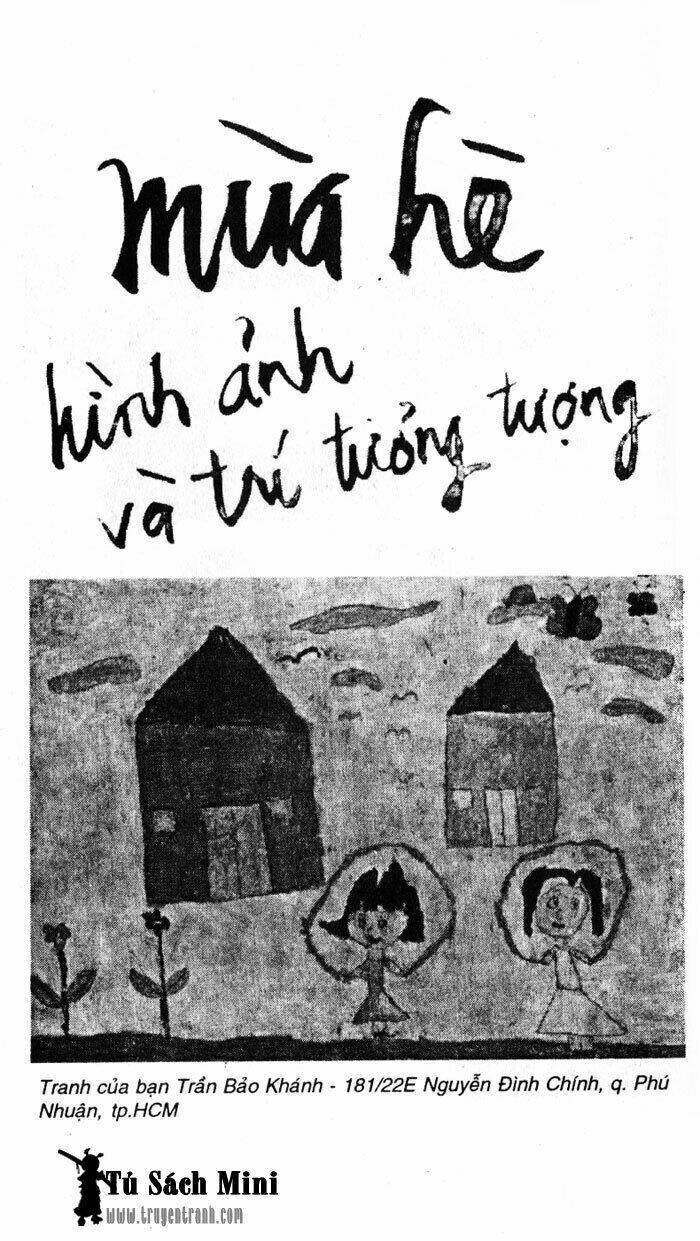 mùa hè
hình ảnh
và trí tưởng tượng
Tranh của bạn Trần Bảo Khánh - 181/22E Nguyễn Đình Chính, q. Phú
Nhuận, tp.HCM
Tủ Sách Mini
www.truyentranh.com